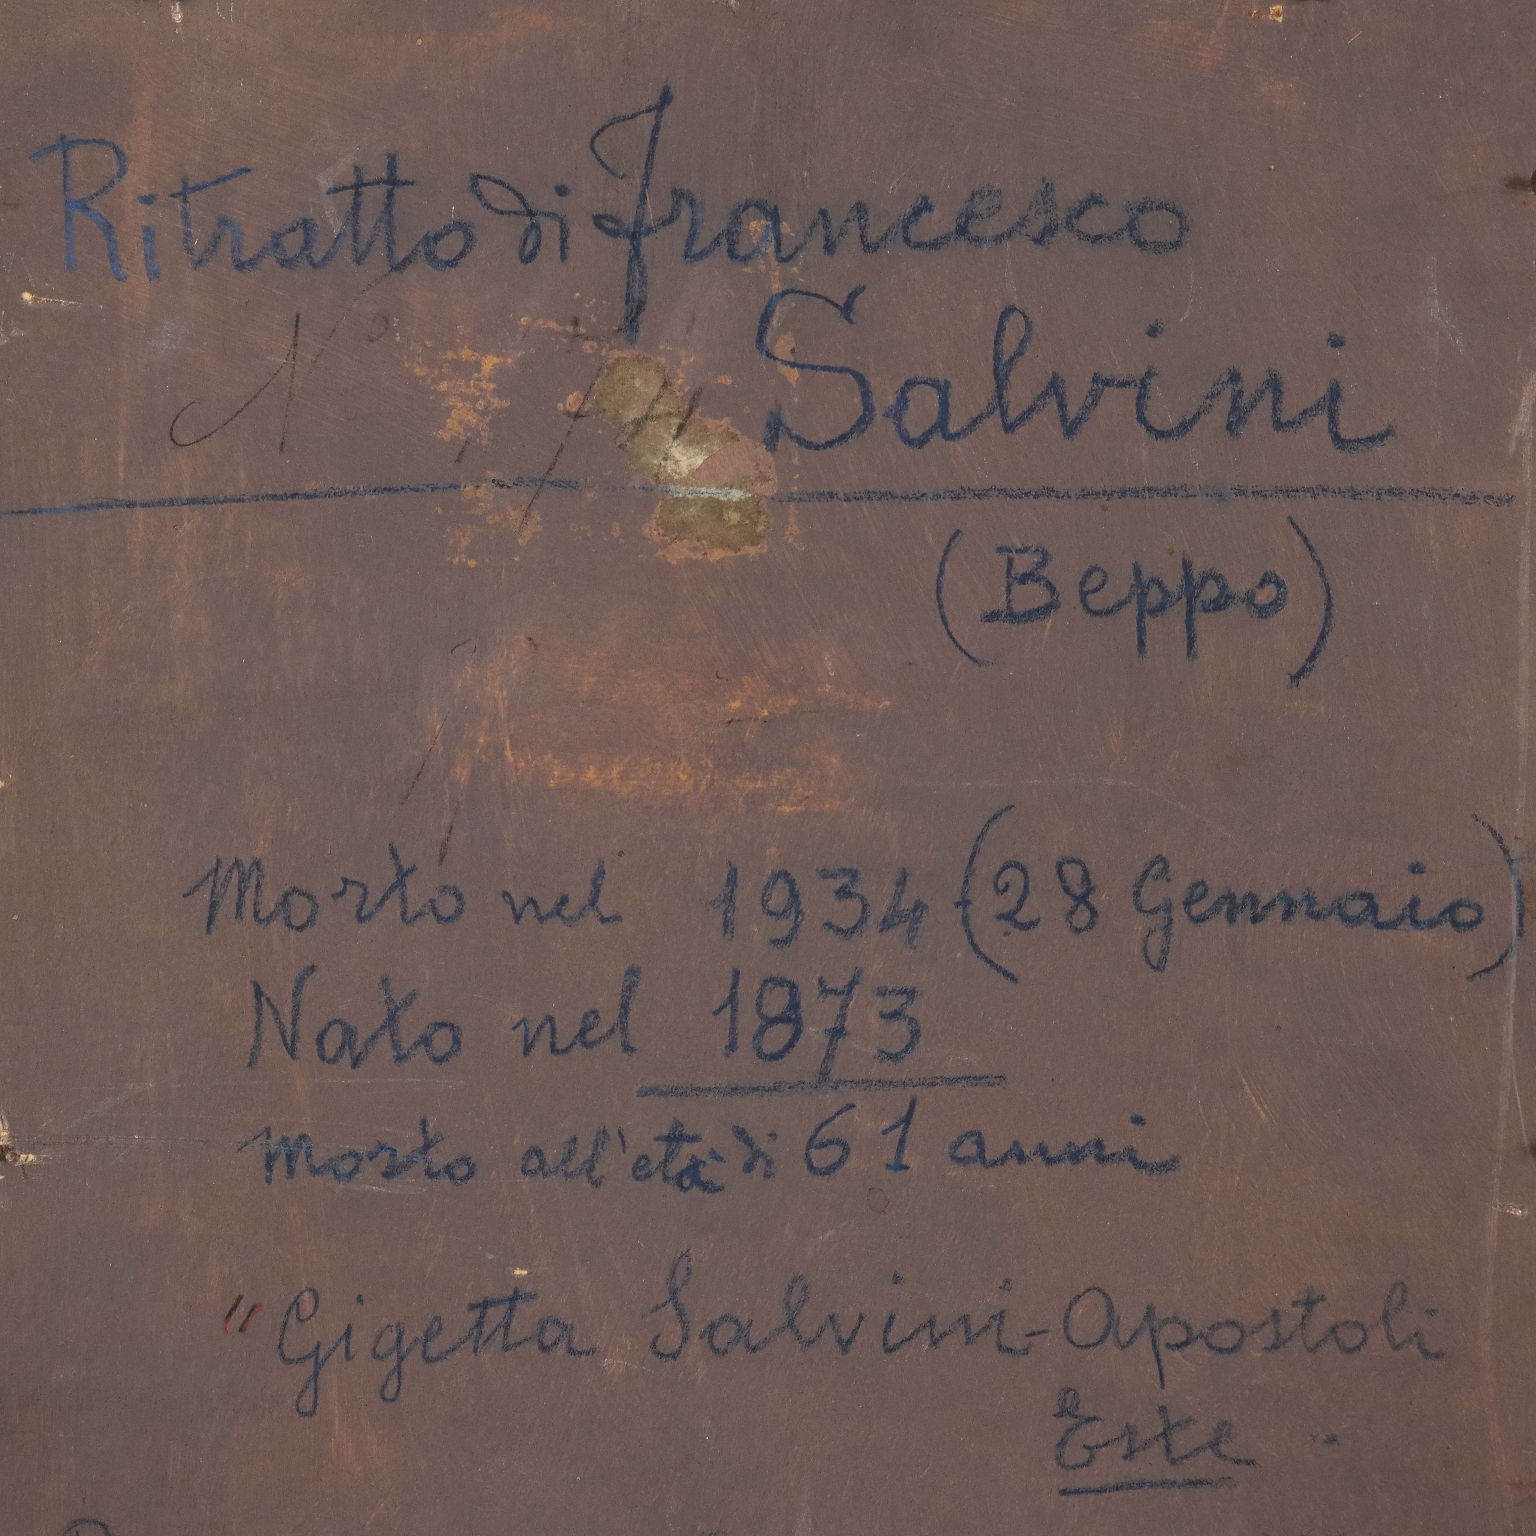 Ritratto di Francesco
Salvini
N°
(Beppo)
Morto nel 1934 (28 Gennaio)
Nato nel 1873
Morto all'età di 61 anni
"Gigetta Salvini-Apostoli
Este.